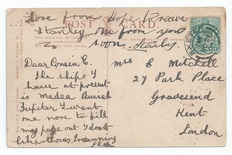 Love from
POST CARD
Stanley one from you
soon. Stanley.
Dear Cousin E.
Mrs E Mitchell
the ships I
27 Park Place
have at present
Gravesend
is Medea
Jupiter I want
Kent
one more to fill
London
page out I dont
like those